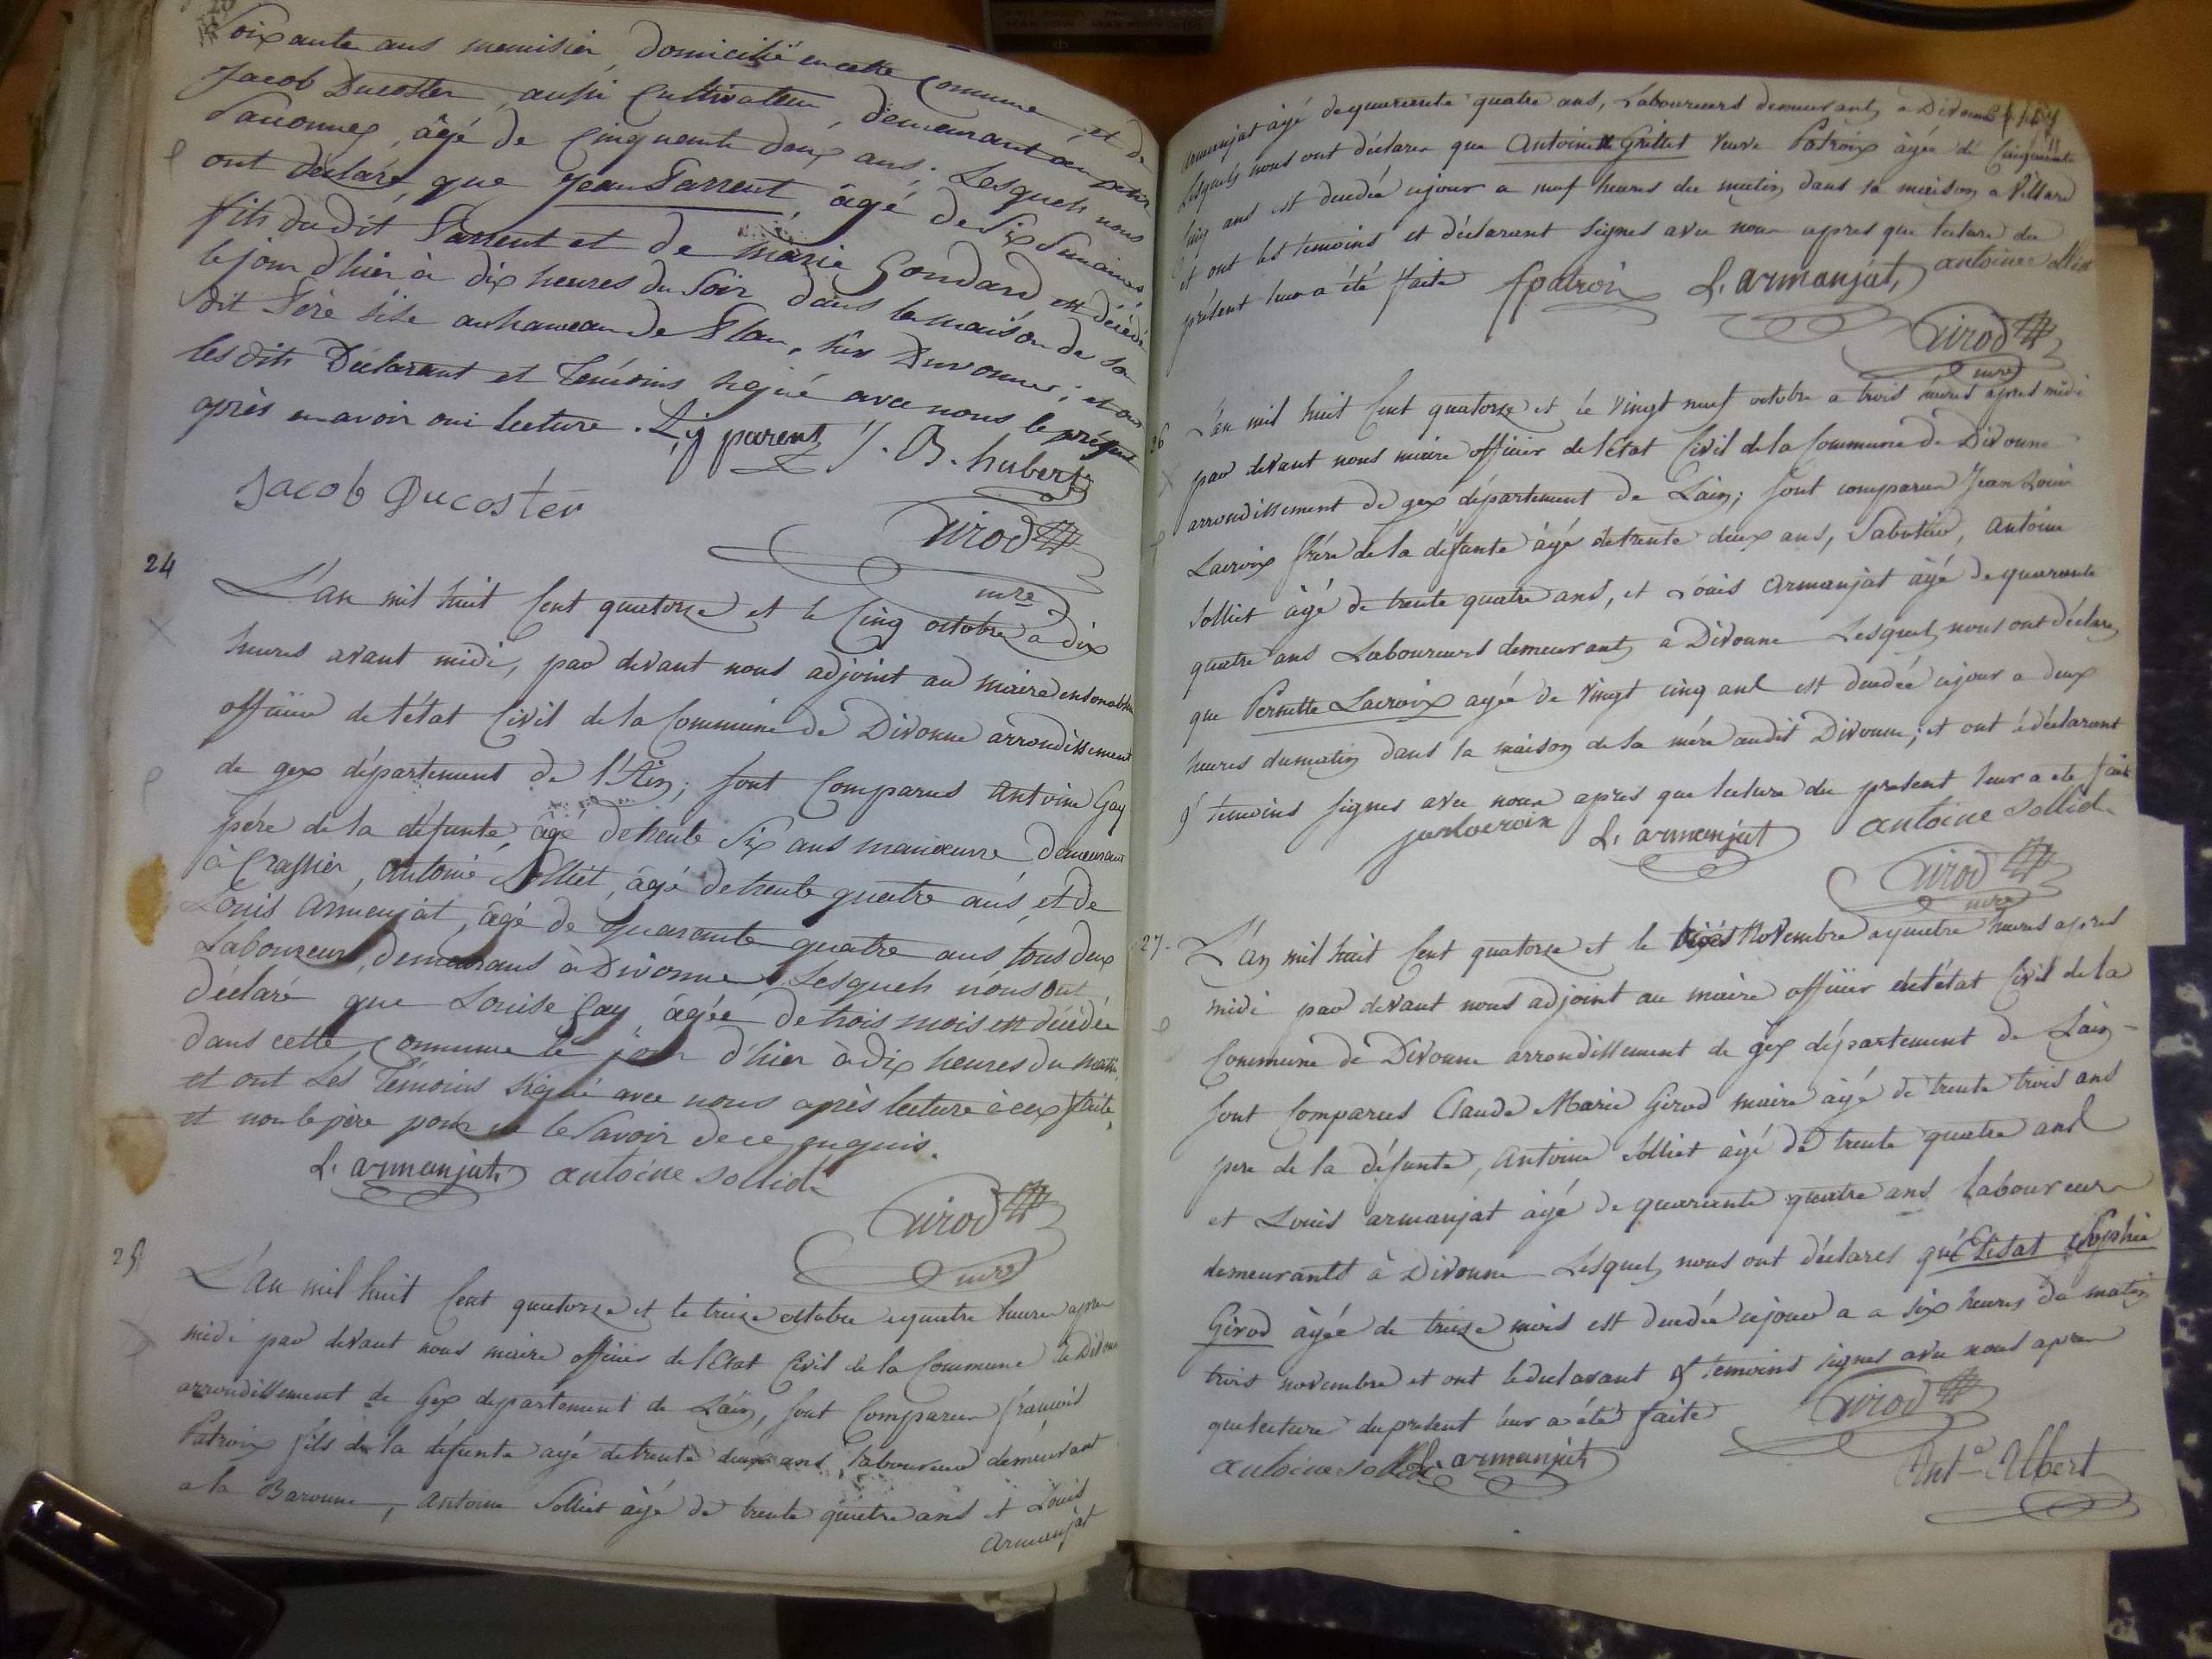 Soixante ans menuisier, domicilié en cette Commune, et de
Jacob Ducoster, aussi Cultivateur, demeurant au petit
Vauonnex, âgé de Cinquante deux ans; Lesquels nous
ont déclaré, que Jean Parrent, âgé de Six Semaines
fils du dit Parrent et de Marie Goudard est décédé
le jour d'hier à dix heures du Soir dans la maison de Son
dit Père sise au hameau de Plan, sur Divonne; et ont
les dits Déclarant et Témoins signé avec nous le présent
après en avoir oui lecture. parent J. B. hubert
Jacob Ducoster
Girod
mre
24
L'an mil huit Cent quatorze et le Cinq octobre a dix
heures avant midi, par devant nous adjoint au maire en son absence
officier de l'état Civil de la Commune de Divonne arrondissement
de gex département de l'Ain; sont Comparus Antoine Gay
père de la défunte, âgé de trente Six ans manœuvre, demeurant
à Crassier, Antoine Solliet, âgé de trente quatre ans, et de
Louis Armanjat, âgé de quarante quatre ans tous deux
Laboureurs, demeurans à Divonne Lesquels nous ont
déclaré que Louise Gay âgée de trois mois est décédée
dans cette Commune le jour d'hier à dix heures du matin
et ont Les Témoins signé avec nous après lecture à eux faite,
et non le père pour ne le Savoir de ce enquis.
L. armanjat antoine solliet
Girod
mre
25
L'An mil huit Cent quatorze et le treize octobre a quatre heures apres
midi par devant nous maire officier de l'Etat Civil de la Commune de Divonne
arrondissement de Gex departement de L'ain, sont Comparus francois
Patroix fils de la défunte agé de trente deux ans, laboureur demeurant
a la Baronne, Antoine Solliet âgé de trente quatre ans et Louis
Armanjat
armanjat âgé de quarante quatre ans, Laboureurs demeurants a Divonne
Lesquels nous ont déclarer que Antoinette Grillet veuve Patroix âgée de Cinquante
Cinq ans est decedée cejour a neuf heures du matin dans sa maison a Villard
et ont les temoins et déclarant signés avec nous apres que lecture du
présent leur a été faite fpatroix L. armanjat, antoine solliet
Girod
mre
26
L'an mil huit Cent quatorze et le Vingt neuf octobre a trois heures apres midi
par devant nous maire officier de l'Etat Civil de la Commune de Divonne
arrondissement de gex département de L'ain; sont comparus Jean Louis
Lacroix frère de la défunte âgé de trente deux ans, Sabotier, Antoine
Solliet âgé de trente quatre ans, et Louis Armanjat âgé de quarante
quatre ans Laboureurs demeurants a Divonne Lesquels nous ont déclarer
que Pernette Lacroix agée de Vingt cinq ans est decedée cejour a deux
heures du matin dans la maison de sa mère audit Divonne; et ont le déclarant
& temoins signes avec nous apres que lecture du present leur a ete faite
L. armanjat antoine solliet
Girod
mre
27
L'an mil huit Cent quatorze et le trois Novembre a quatre heures apres
midi par devant nous adjoint au maire officier de l'état Civil de la
Commune de Divonne arrondissement de gex département de L'ain
sont Comparus Claude Marie Girod maire âgé de trente trois ans
pere de la défunte, Antoine Solliet âgé de trente quatre ans
et Louis armanjat âgé de quarante quatre ans laboureurs
demeurants à Divonne Lesquels nous ont déclares qu'Elisat Sophie
Girod âgée de treize mois est decedée cejour a a six heures du matin
trois novembre et ont le declarant & temoins signes avec nous apres
que lecture du present leur a été faite Girod
antoine solliet L. armanjat Ant.e Albert